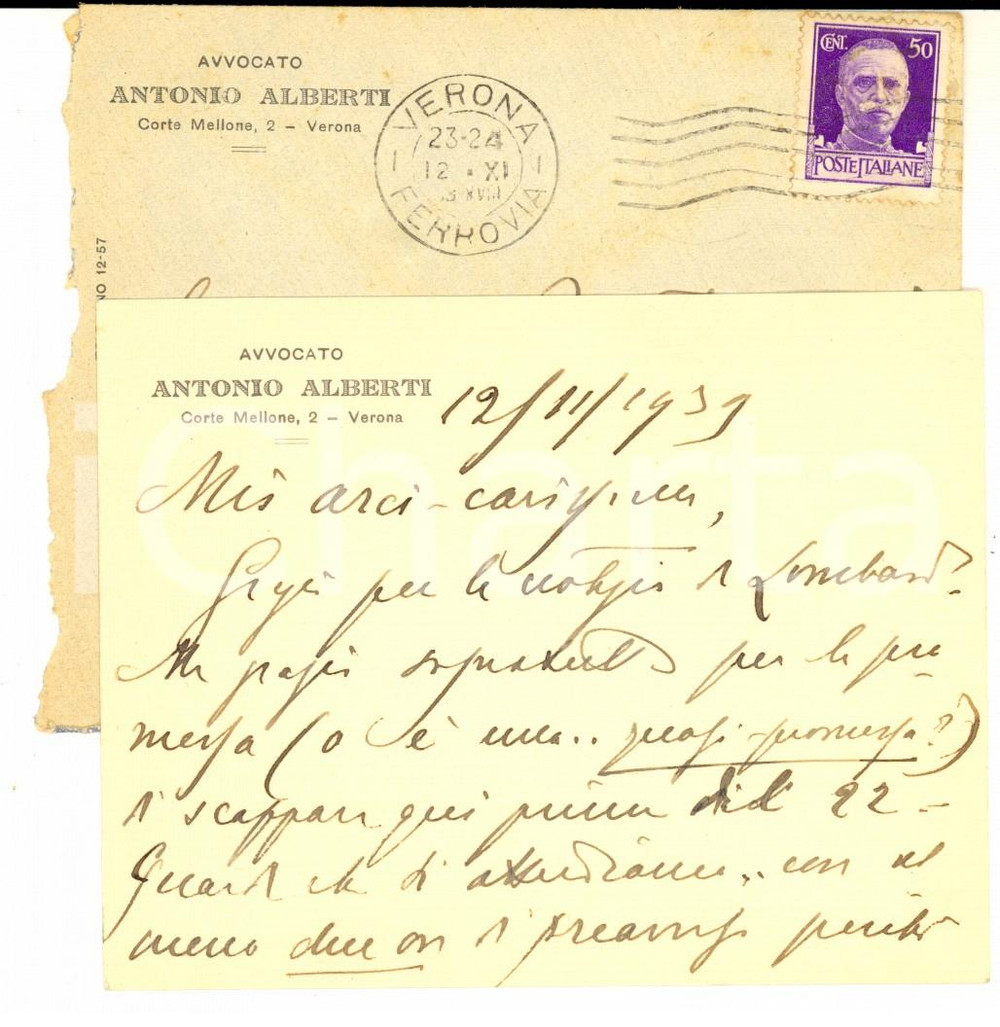 AVVOCATO
ANTONIO ALBERTI
Corte Mellone, 2 – Verona
VERONA
23-24
12 · XI
XVIII
FERROVIA
CENT. 50
POSTE ITALIANE
NO 12-57
iCharta
AVVOCATO
ANTONIO ALBERTI
Corte Mellone, 2 – Verona
12/11/1939
Mio arci-carissimo,
Grazie per le notizie di Lombardi.
Ma grazie soprattutto per la pro
messa (o è una.. quasi-promessa?)
di scappare qui prima del 22-
Guarda che ti attendiamo.. con al
meno due ore di preavviso